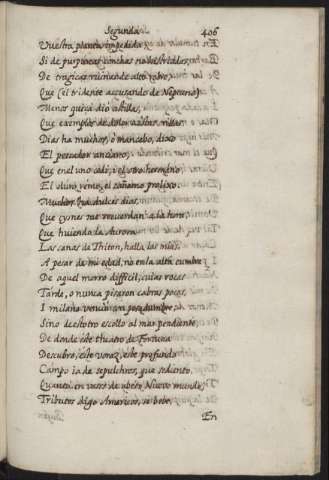 Segunda. 406
Vuestra planta impedida
Si de purpureas conchas no histriadas,
De tragicas ruinas de alto robre,
Que (el tridente acusando de Neptuno)
Menos quiça dió astillas,
Que exemplos de dolor a estas orillas.
Dias ha muchos, ò mancebo, dixo
El pescador anciano,
Que en el uno cedi, i el otro hermano
El duro remo, el cañamo prolixo.
Muchos ha dulces dias,
Que cysnes me recuerdan a la hora,
Que huiendo la Aurora
Las canas de Triton, halla las mias,
A pesar de mi edad, no en la alta cumbre
De aquel morro difficil, cuias rocas
Tarde, o nunca pisaron cabras pocas,
I milano venció con pesadumbre
Sino de estotro escollo al mar pendiente,
De donde este theatro de Fortuna
Descubro, este voraz, este profundo
Campo ia de sepulchros, que sediento,
Quanto en vasos de abeto Nuevo mundo,
Tributos digo Americos, se bebe,
En